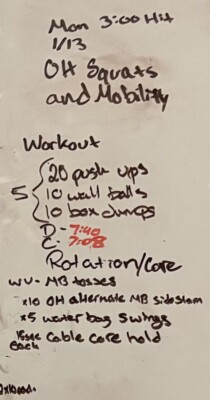 Mon 3:00 Hit
1/13
OH Squats
and Mobility
Workout
5 { 20 push ups
10 wall balls
10 box jumps
D - 7:40
C - 7:08
Rotation/Core
WU - MB tosses
x10 OH alternate MB side slam
x5 water bag swings
15sec each cable core hold